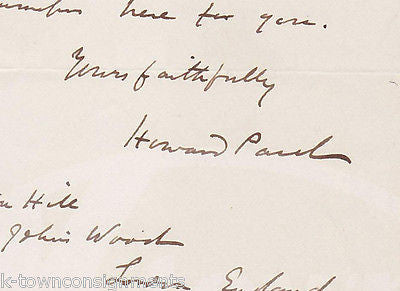 here for you.
Yours faithfully
Howard Paul
Hill
Johns Wood
England
k-townconsignments